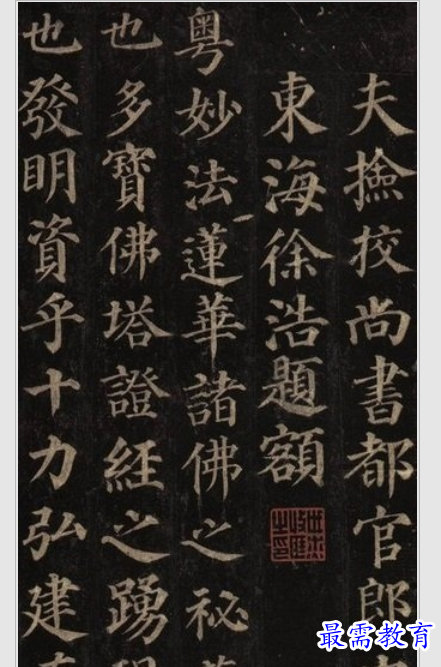 夫撿校尚書都官郎
東海徐浩題額
粤妙法蓮華諸佛之祕
也多寶佛塔證経之踴
也發明資乎十力弘建
最需教育